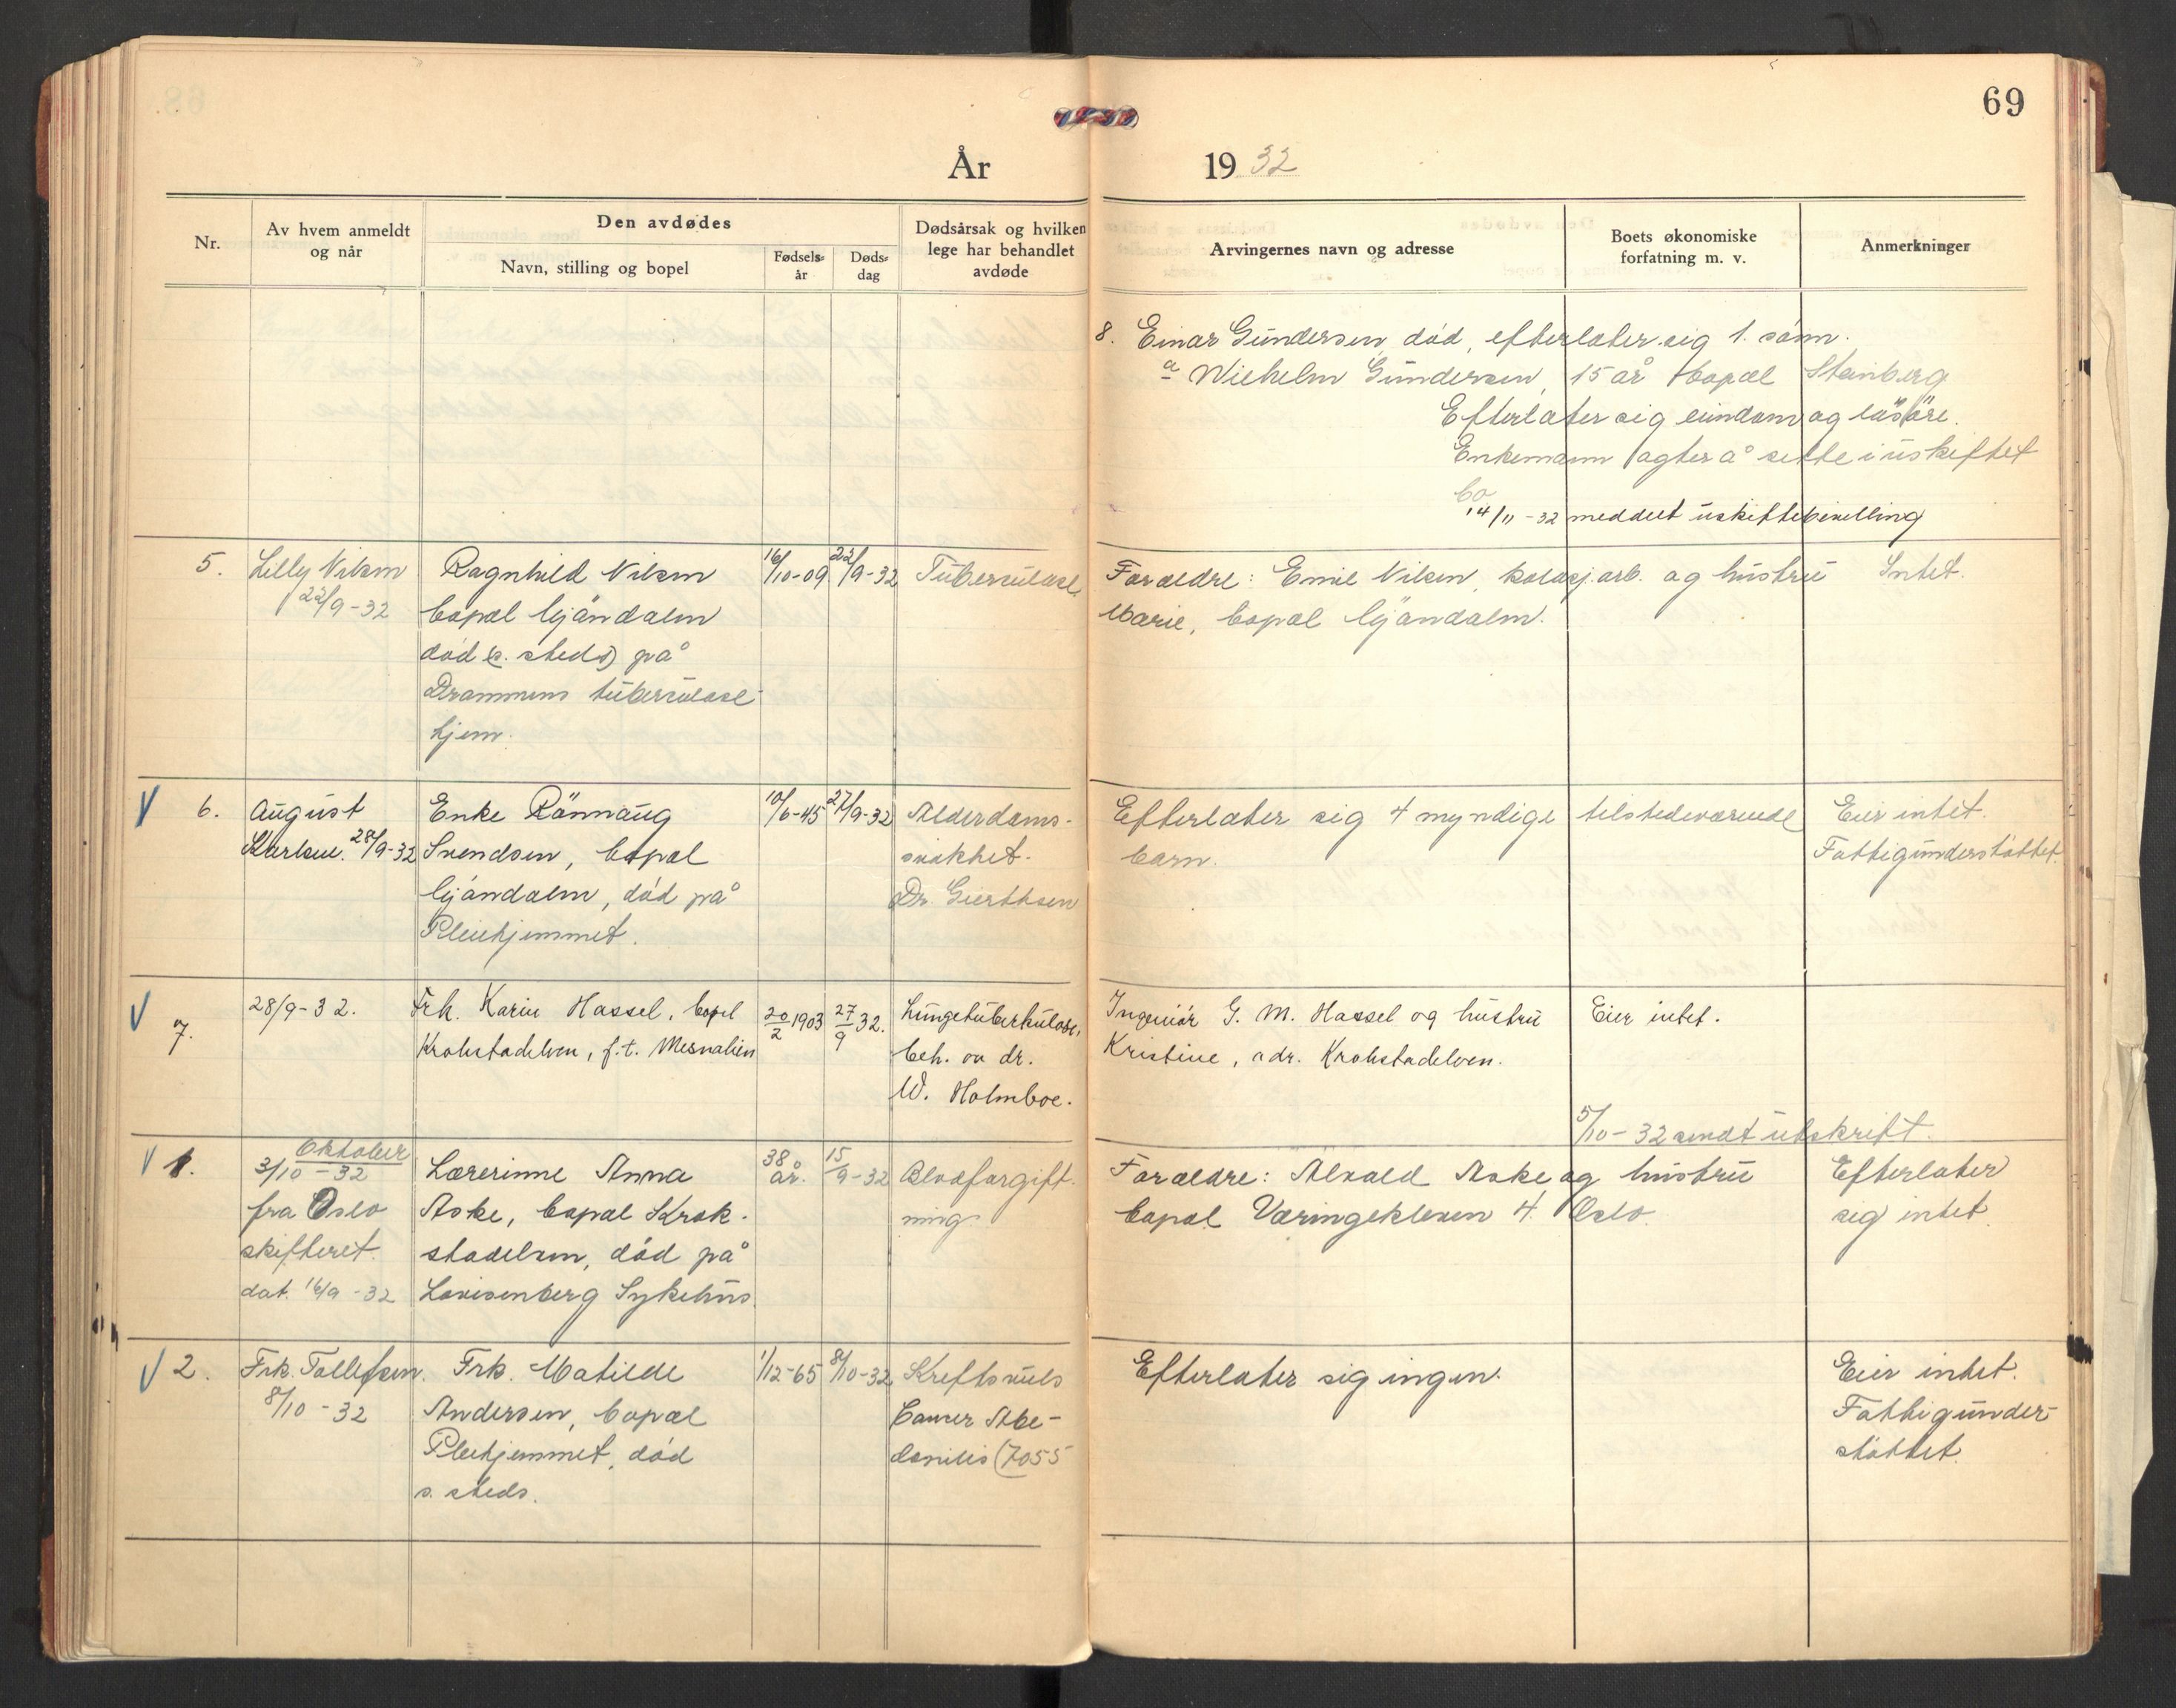 69
År 1932
Nr.
Av hvem anmeldt
og når
Den avdødes
Navn, stilling og bopel
Fødsels-
år
Døds-
dag
Dødsårsak og hvilken
lege har behandlet
avdøde
Arvingernes navn og adresse
Boets økonomiske
forfatning m. v.
Anmerkninger
8. Einar Gundersen, död, efterlater sig 1. sönn.
a Wilhelm Gundersen, 15 år bopæl Steinberg
Efterlater sig eiendom og lösöre.
Enkemann agter å sitte i uskiftet
bo
14/11-32 meddelt uskiftebevilling
5.
Lilly Nilsen
22/9-32
Ragnhild Nilsen
bopæl Gjöndalen
död (s. steds) på
Drammens tuberculose
hjem.
16/10-09
22/9-32
Tuberculose
Foreldre: Emil Nilsen, arb. og hustru
Marie, bopæl Gjöndalen.
Intet.
6.
August
Karlsen. 28/9-32
Enke Rönnaug
Svendsen, bopæl
Gjöndalen, död på
Pleiehjemmet.
10/6-45
27/9-32
Alderdoms-
svakhet.
Dr. Gierthsen
Efterlater sig 4 myndige tilstedeværende
barn.
Eier intet.
Fattigunderstöttet.
7.
28/9-32.
Frk. Karin Hassel, bopel
Krokstadelven, f.t. Mesnalien
20/2 1903
27/9 32.
Lungetuberkulose,
beh. av dr.
W. Holmboe.
Ingeniör G. M. Hassel og hustru
Kristine, adr. Krokstadelven.
Eier intet.
5/10-32 sendt utskrift.
1.
Oktober
3/10-32
fra Oslo
skifteret.
dat. 16/9-32
Lærerinne Anna
Aske, bopæl Krok-
stadelven, död på
Lovisenberg Sykehus
38
år.
15/9-32
Blodforgift-
ning
Foreldre: Alvald Aske og hustru
bopæl Væringekleven 4. Oslo.
Efterlater
sig intet.
2.
Frk. Tollefsen.
8/10-32
Frk. Matilde
Andersen, bopæl
Pleiehjemmet, död
s. steds.
1/12-65
8/10-32
Kreftsvuls
(7055
Efterlater sig ingen.
Eier intet.
Fattigunder-
støttet.